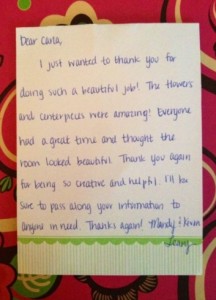 Dear Carla,
I just wanted to thank you for
doing such a beautiful job! The flowers
and centerpieces were amazing! Everyone
had a great time and thought the
room looked beautiful. Thank you again
for being so creative and helpful. I'll be
sure to pass along your information to
anyone in need. Thanks again! Mandy & Kevin